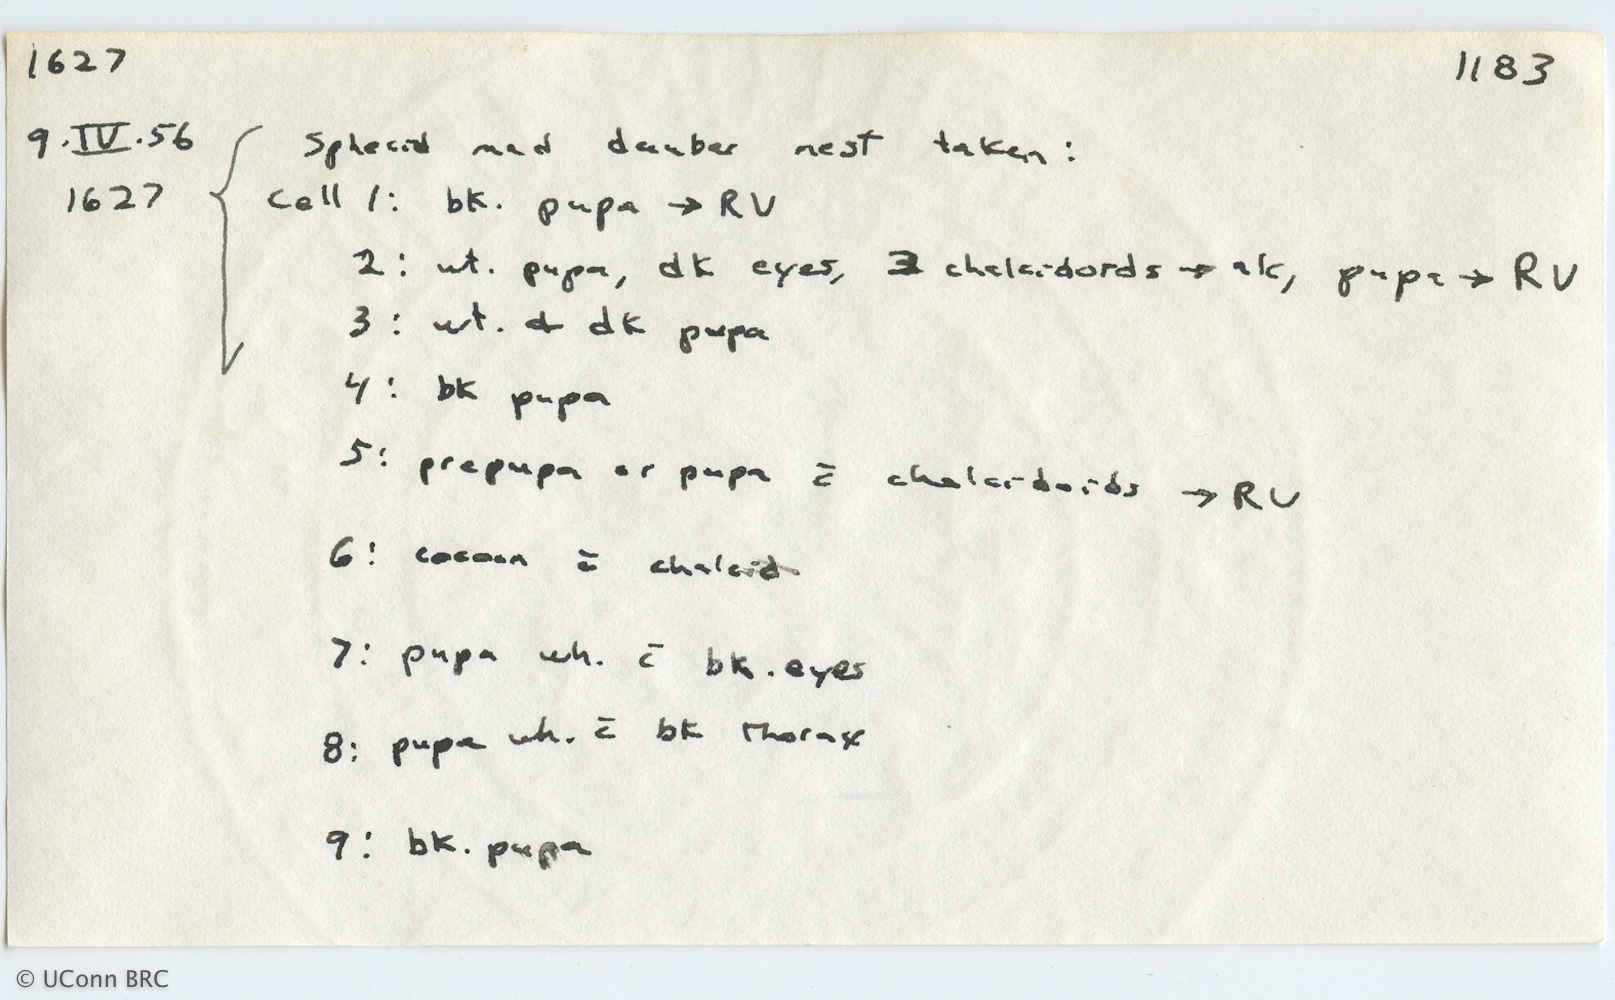 1627 1183
9.IV.56 Sphecid mud dauber nest taken:
1627 Cell 1: bk. pupa → RV
2: wt. pupa, dk eyes, 3 chalcidoids → alc, pupa → RV
3: wt. & dk pupa
4: bk pupa
5: prepupa or pupa c̄ chalcidoids → RV
6: cocoon c̄ chalcid
7: pupa wh. c̄ bk. eyes
8: pupa wh. c̄ bk thorax
9: bk. pupa
© UConn BRC